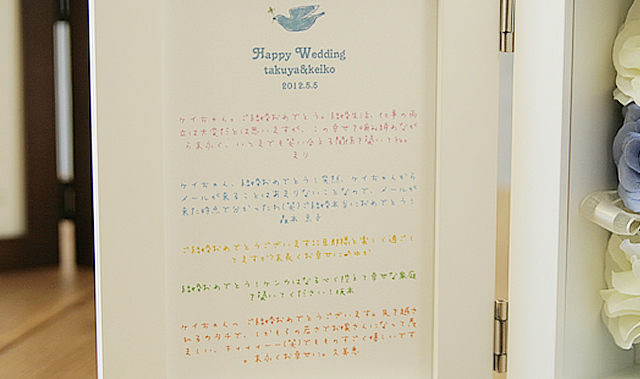 Happy Wedding
takuya&keiko
2012.5.5
ケイちゃん。ご結婚おめでとう。結婚生活、仕事の両
立は大変だとは思いますが、この幸せを噛み締めなが
ら末永く、いつまでも笑い合える関係を築いてね。
まり
ケイちゃん、結婚おめでとう!突然、ケイちゃんから
メールが来ることはあまりないことなので、メールが
来た時点で分かったわ(笑)ご結婚本当におめでとう!
ご結婚おめでとうございます
長くお幸せに
結婚おめでとう!ケンカはなるべく控えて幸せな家庭
を築いてください!
ケイちゃんへ ご結婚おめでとうございます。先を越さ
れるのタチで、しかもその若さでお嫁さんになって羨
ましい、チィィィィー(笑)でもものすごく嬉しいです
。末永くお幸せに。